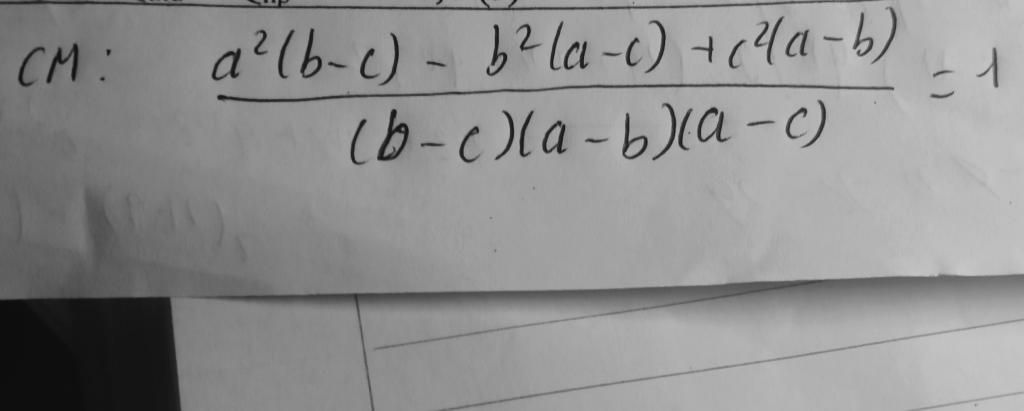 CM: a²(b-c) - b²(a-c) + c²(a-b) = 1
(b-c)(a-b)(a-c)